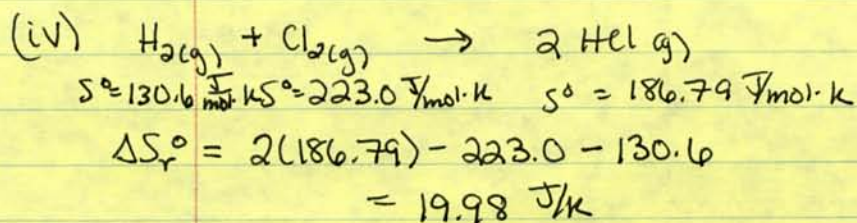 (iv) H₂(g) + Cl₂(g) → 2 HCl (g)
S°=130.6 J/mol·K S°=223.0 J/mol·K S° = 186.79 J/mol·K
ΔSᵣ° = 2(186.79) - 223.0 - 130.6
= 19.98 J/K